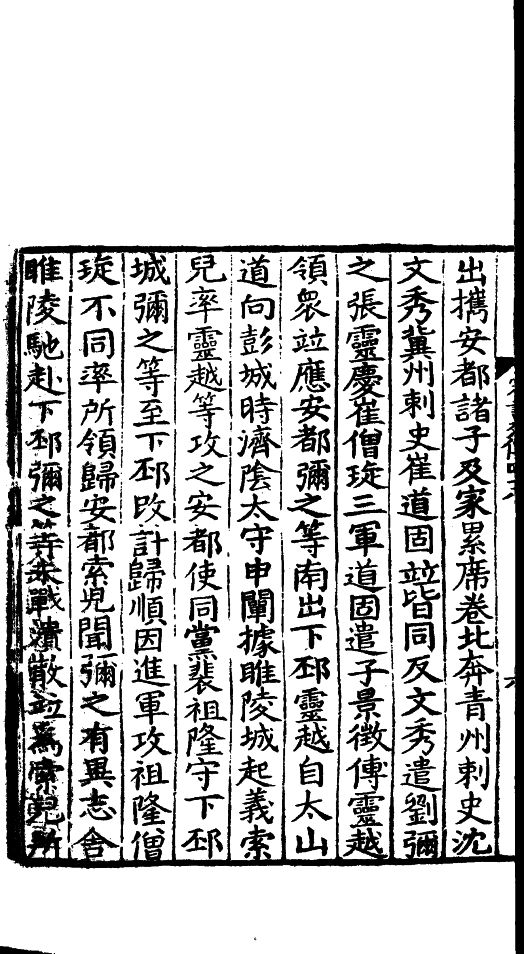 出攜安都諸子及家累席卷北奔青州刺史沈
文秀冀州刺史崔道固竝皆同反文秀遣劉彌
之張靈慶崔僧琁三軍道固遣子景徵傅靈越
領衆竝應安都彌之等南出下邳靈越自太山
道向彭城時濟陰太守申闡據睢陵城起義索
兒率靈越等攻之安都使同黨裴祖隆守下邳
城彌之等至下邳改計歸順因進軍攻祖隆僧
琁不同率所領歸安都索兒聞彌之有異志舍
睢陵馳赴下邳彌之等未戰潰散竝爲索兒所